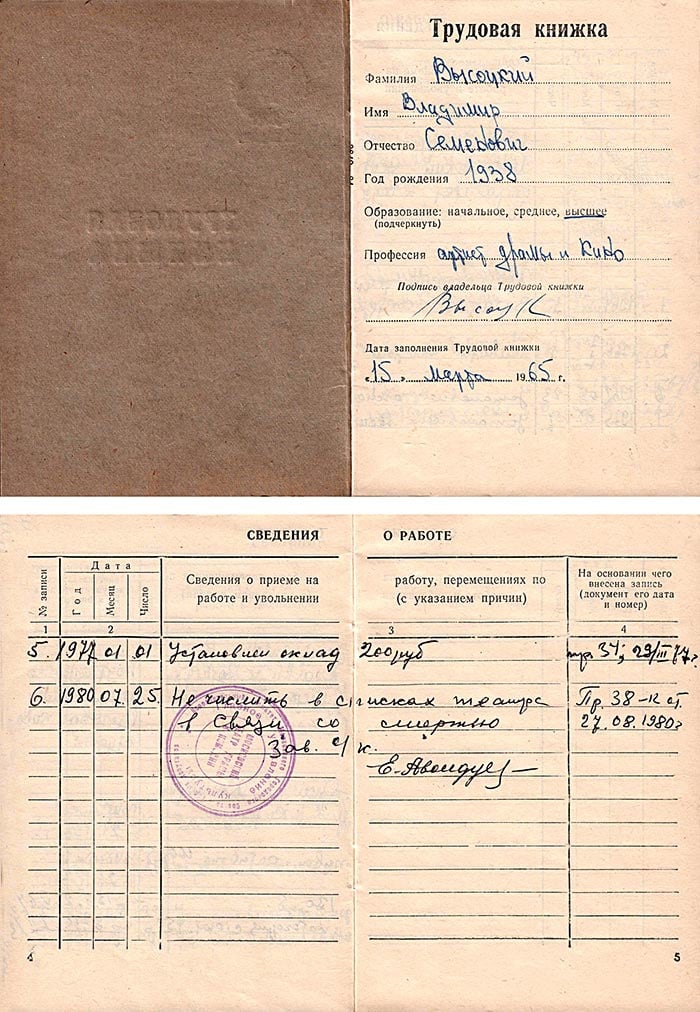 Трудовая книжка
Фамилия Высоцкий
Имя Владимир
Отчество Семенович
Год рождения 1938
Образование: начальное, среднее, высшее
(подчеркнуть)
Профессия артист драмы и кино
Подпись владельца Трудовой книжки
Высоц
Дата заполнения Трудовой книжки
„15„ марта 1965 г.
СВЕДЕНИЯ О РАБОТЕ
№ записи
Дата
Год
Месяц
Число
Сведения о приеме на работу, перемещениях по
работе и увольнении (с указанием причин)
На основании чего
внесена запись
(документ его дата
и номер)
1 2 3 4
5. 1977 01 01 Установлен оклад 200 руб пр. 31; 29/III 77г
6. 1980 07. 25. Не числить в списках театра Пр. 38-к от.
в связи со смертью 27.08.1980г
Зав. с/к.
4 5